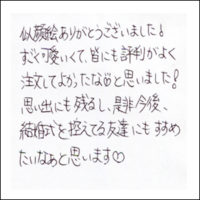 似顔絵ありがとうございました!
すごく可愛いくて、皆にも評判がよく
注文してよかったなぁと思いました!
思い出にも残るし、是非今後、
結婚式を控えてる友達にもすすめ
たいなぁと思います♡